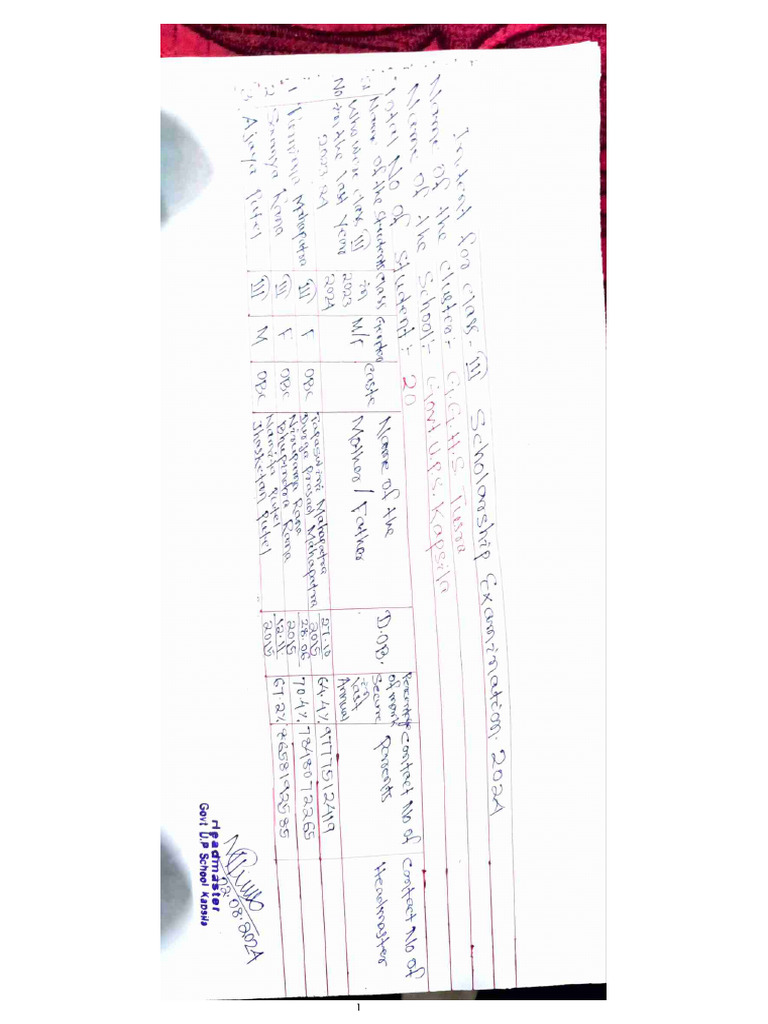 Intent for class - III Scholarship Examination. 2024
Name of the Cluster:- G.G.H.S. Tusra
Name of the School:- Govt U.P.S. Kapsila
Total No of Student:- 20
Sl No Name of the Students who were class III in the last Year 2023-24 Class in 2023 2024 Gender M/F Caste Name of the Mother/Father D.O.B. Percentage of mark Secure in last Annual Contact No of Parents Contact No of Headmaster
1 Mahapatra III F OBC Tapaswini Mahapatra Durga Prasad Mahapatra 27.10 2015 64.4% 9777512419
2 Rana III F OBC Nirupama Rana Bhupindra Rana 28.06 2015 70.4% 7848072265
3. Ajaya Putel III M OBC Namita Putel Jhasketan Putel 12.11 2015 67.2% 8658192585
02.08.2024
Headmaster
Govt U.P School Kapsila
1